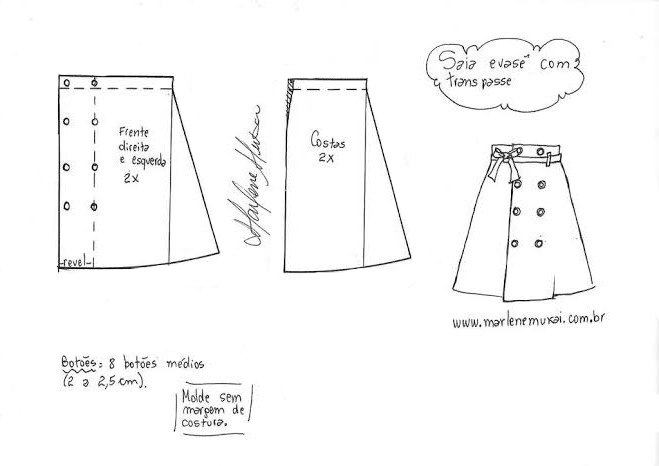 Saia evasê com
transpasse
Frente
direita
e esquerda
2x
revel
Costas
2x
Marlene Mukai
www.marlenemukai.com.br
Botões: 8 botões médios
(2 a 2,5 cm).
Molde sem
margem de
costura.